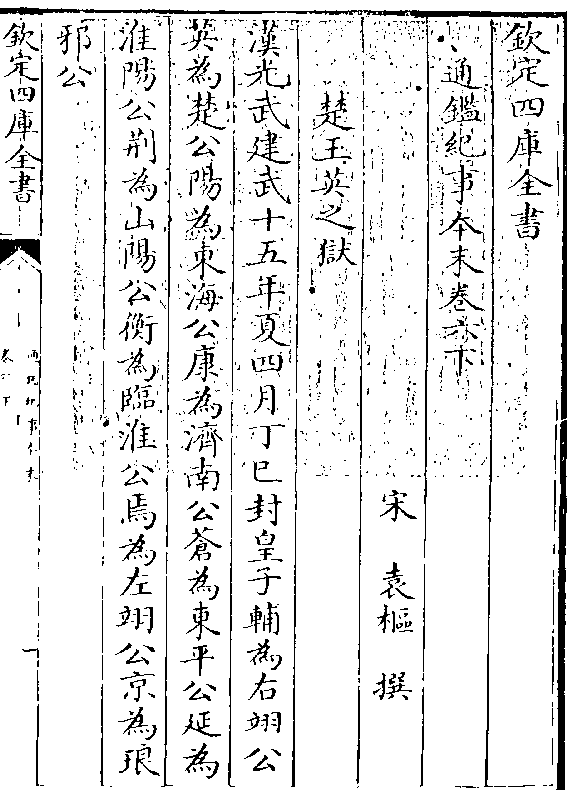 欽定四庫全書
通鑑紀事本末卷六下
宋 袁樞 撰
楚王英之獄
漢光武建武十五年夏四月丁巳封皇子輔為右翊公
英為楚公陽為東海公康為濟南公蒼為東平公延為
淮陽公荆為山陽公衡為臨淮公焉為左翊公京為琅
邪公
欽定四庫全書
卷六下
通鑑紀事本末
一